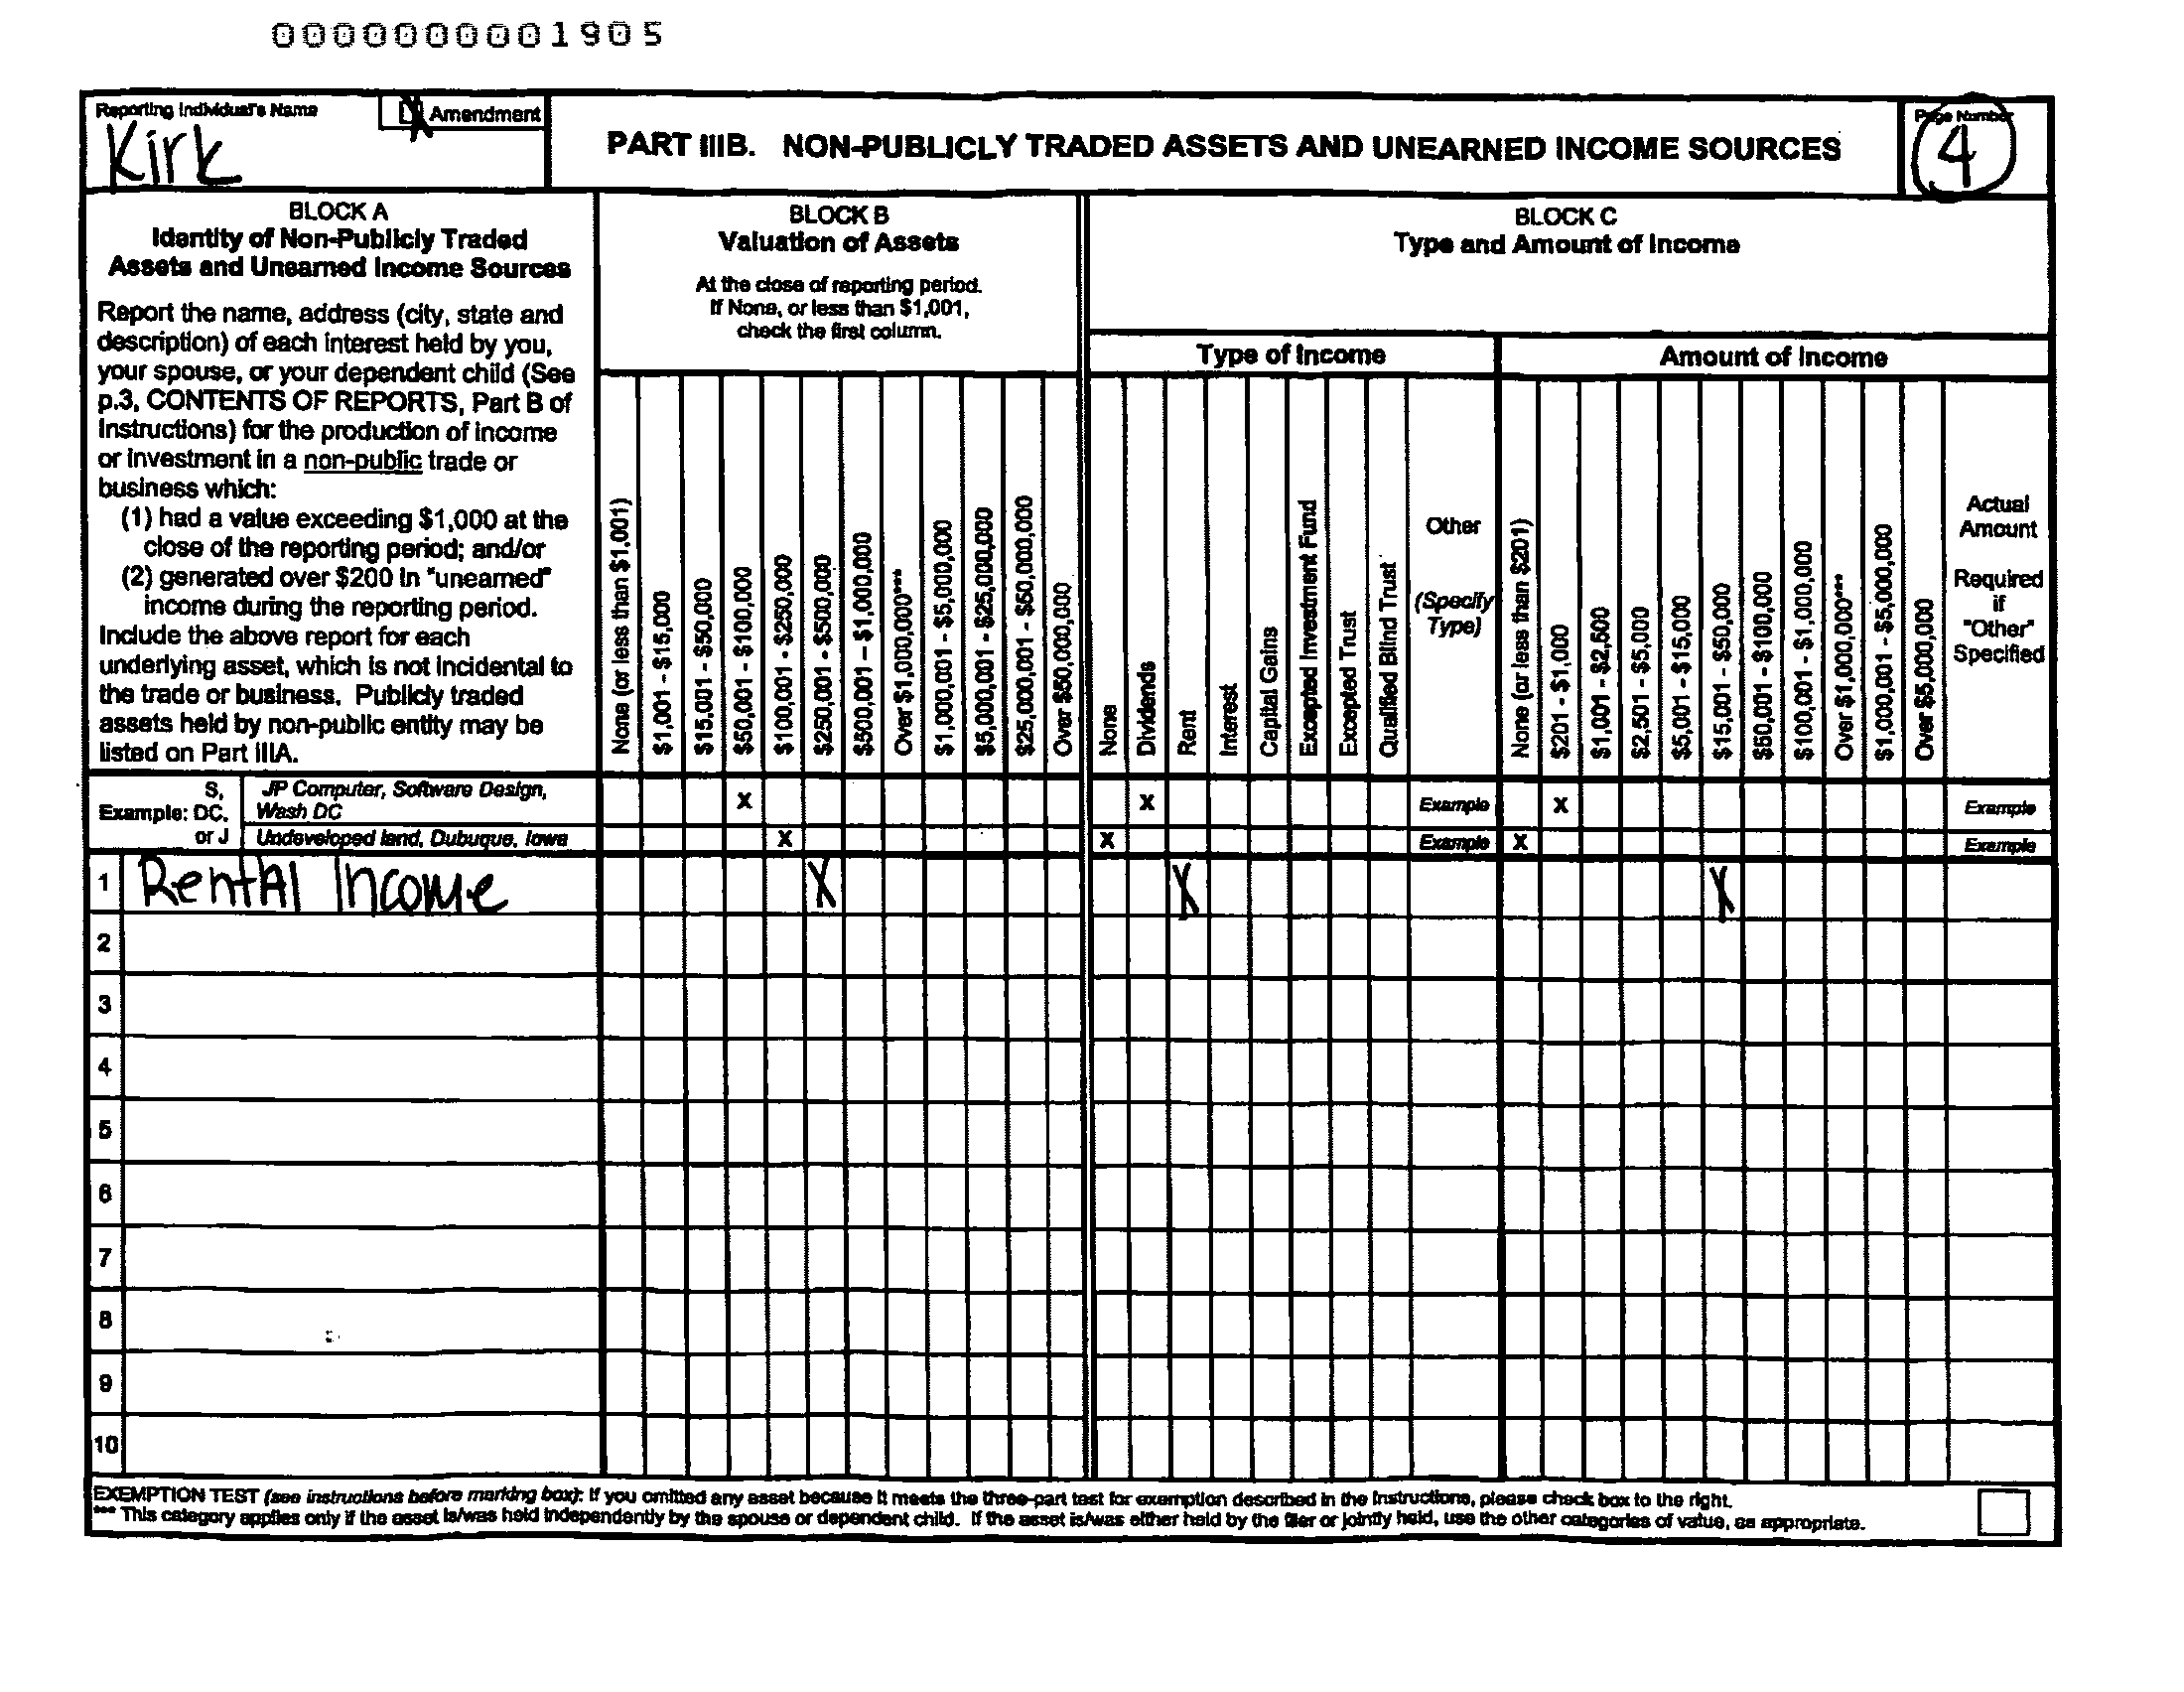 0000000001905
Reporting Individual's Name
Amendment
Kirk
PART IIIB. NON-PUBLICLY TRADED ASSETS AND UNEARNED INCOME SOURCES
Page Number
4
BLOCK A
Identity of Non-Publicly Traded
Assets and Unearned Income Sources
Report the name, address (city, state and
description) of each interest held by you,
your spouse, or your dependent child (See
p.3, CONTENTS OF REPORTS, Part B of
Instructions) for the production of income
or investment in a non-public trade or
business which:
(1) had a value exceeding $1,000 at the
close of the reporting period; and/or
(2) generated over $200 in "unearned"
income during the reporting period.
Include the above report for each
underlying asset, which is not incidental to
the trade or business. Publicly traded
assets held by non-public entity may be
listed on Part IIIA.
BLOCK B
Valuation of Assets
At the close of reporting period.
If None, or less than $1,001,
check the first column.
None (or less than $1,001)
$1,001 - $15,000
$15,001 - $50,000
$50,001 - $100,000
$100,001 - $250,000
$250,001 - $500,000
$500,001 - $1,000,000
Over $1,000,000***
$1,000,001 - $5,000,000
$5,000,001 - $25,000,000
$25,000,001 - $50,000,000
Over $50,000,000
BLOCK C
Type and Amount of Income
Type of Income
None
Dividends
Rent
Interest
Capital Gains
Excepted Investment Fund
Excepted Trust
Qualified Blind Trust
Other
(Specify
Type)
Amount of Income
None (or less than $201)
$201 - $1,000
$1,001 - $2,500
$2,501 - $5,000
$5,001 - $15,000
$15,001 - $50,000
$50,001 - $100,000
$100,001 - $1,000,000
Over $1,000,000***
$1,000,001 - $5,000,000
Over $5,000,000
Actual
Amount
Required
if
"Other"
Specified
S,
Example: DC,
or J
JP Computer, Software Design,
Wash DC
X X Example X Example
Undeveloped land, Dubuque, Iowa X X Example X Example
1 Rental Income X X X
2
3
4
5
6
7
8
9
10
EXEMPTION TEST (see instructions before marking box): If you omitted any asset because it meets the three-part test for exemption described in the instructions, please check box to the right.
*** This category applies only if the asset is/was held independently by the spouse or dependent child. If the asset is/was either held by the filer or jointly held, use the other categories of value, as appropriate.